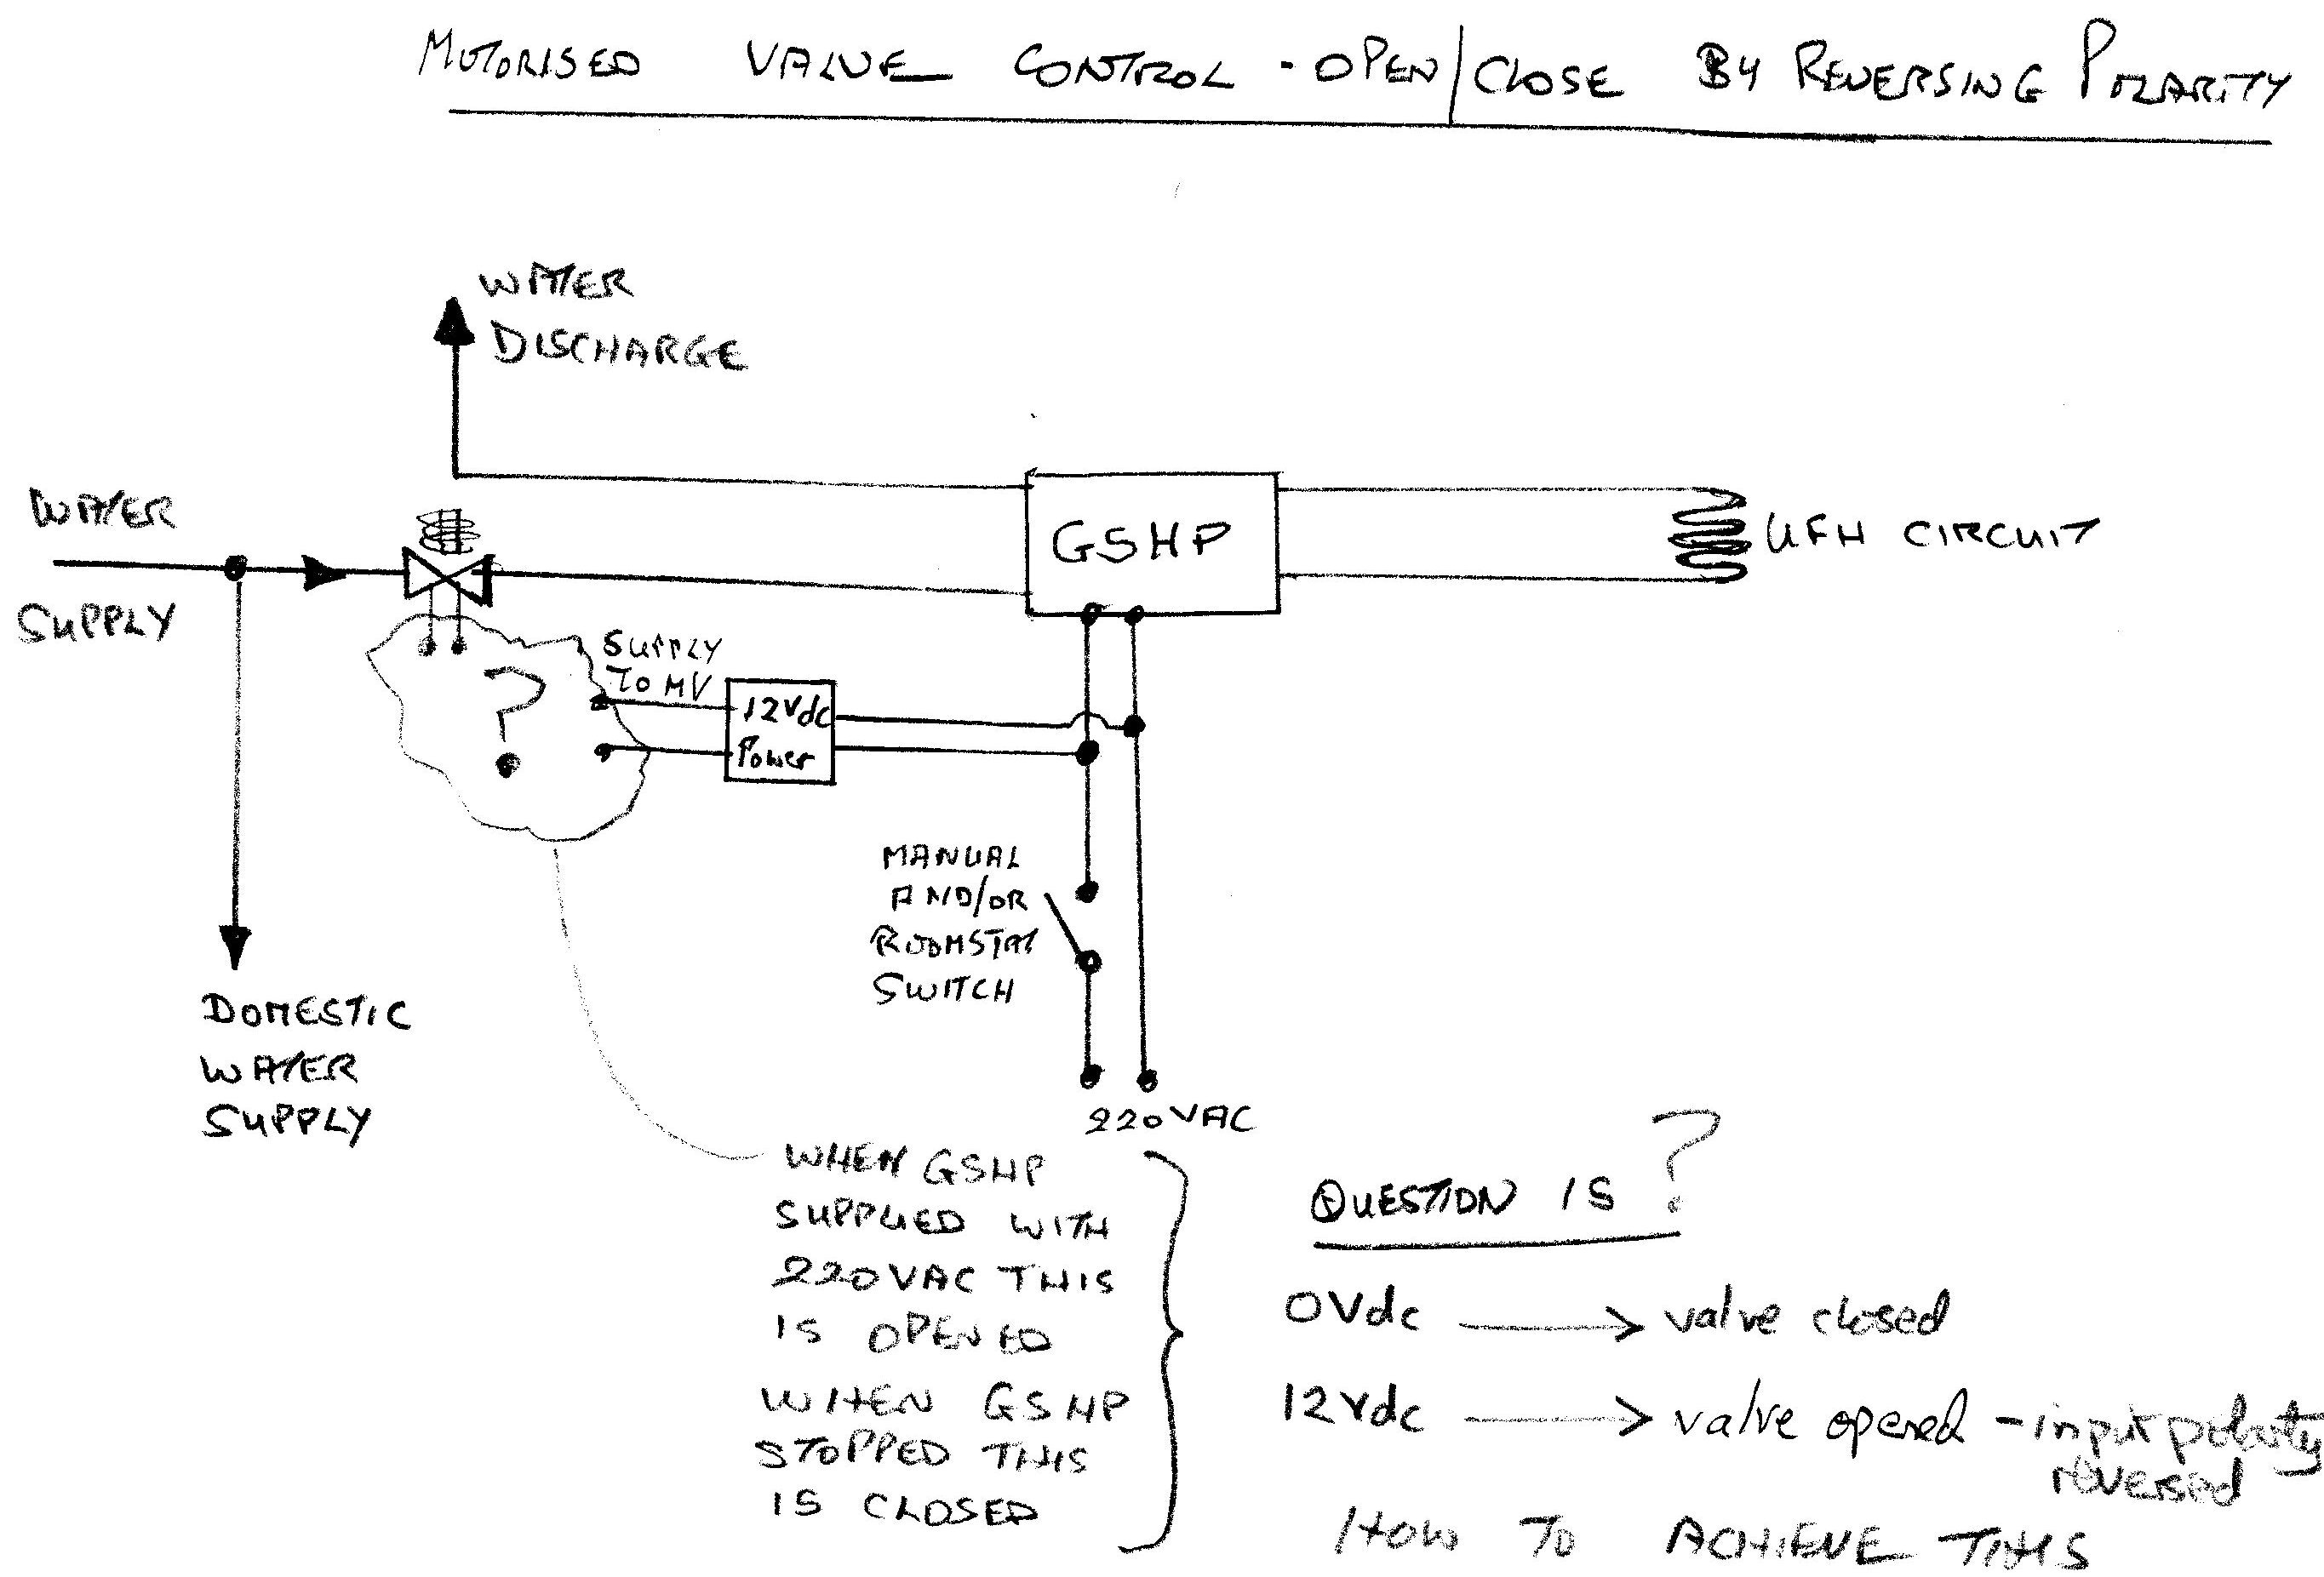 MOTORISED VALVE CONTROL - OPEN/CLOSE BY REVERSING POLARITY
WATER
DISCHARGE
WATER
SUPPLY
GSHP
UFH CIRCUIT
?
SUPPLY
TO MV
12Vdc
Power
MANUAL
AND/OR
ROOMSTAT
SWITCH
DOMESTIC
WATER
SUPPLY
220VAC
WHEN GSHP
SUPPLIED WITH
220VAC THIS
IS OPENED
WHEN GSHP
STOPPED THIS
IS CLOSED
QUESTION IS ?
0Vdc → valve closed
12Vdc → valve opened - input polarity
reversed
HOW TO ACHIEVE THIS